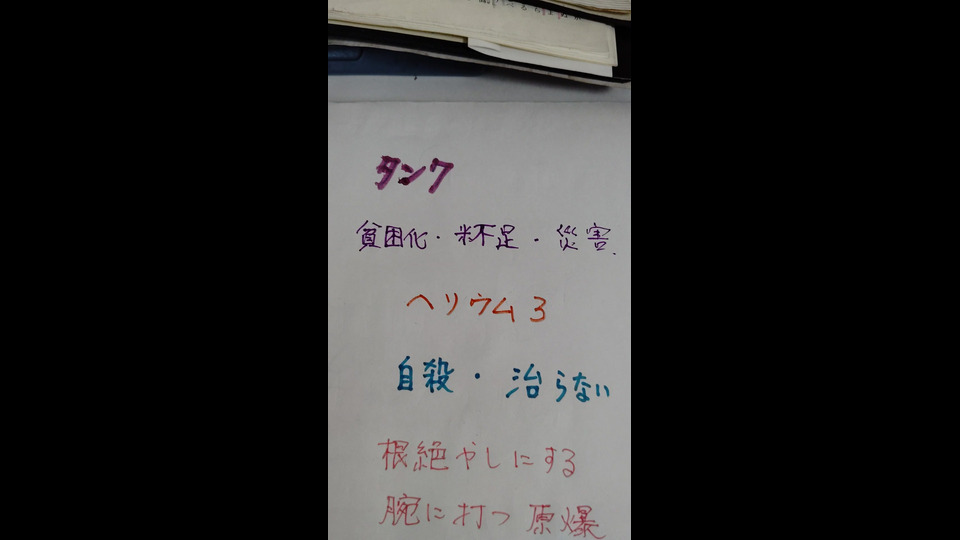 タンク
貧困化・米不足・災害.
ヘリウム3
自殺・治らない
根絶やしにする
腕に打つ原爆